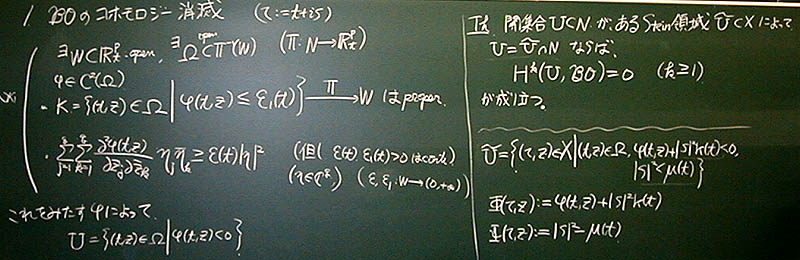 1 BOのコホモロジー消滅 (τ:=t+is)
∃W⊂ℝ^p_t: open, ∃Ω ⊂^open Π⁻¹(W) (Π: N→ℝ^p_t)
φ∈C²(Ω)
・K={(t,z)∈Ω | φ(t,z)≤ε₁(t)} →^Π W は proper.
・Σ_{j=1} Σ_{k=1} ∂²φ(t,z)/∂z_j∂z̄_k η_j η̄_k ≧ ε(t)|η|² (但し ε(t) ε₁(t)>0 はconti)
(ε, ε₁: W→(0,+∞))
これをみたすφによって、
U={(t,z)∈Ω | φ(t,z)<0}
開集合 U⊂N が、ある Stein領域 Ũ⊂X によって
U=Ũ∩N ならば、
H^k(U, BO)=0 (k≧1)
が成り立つ。
Ũ={(τ,z)∈X | (t,z)∈Ω, φ(t,z)+|s|²k(t)<0, |s|²<μ(t)}
Φ(τ,z):=φ(t,z)+|s|²k(t)
Ψ(τ,z):=|s|²−μ(t)